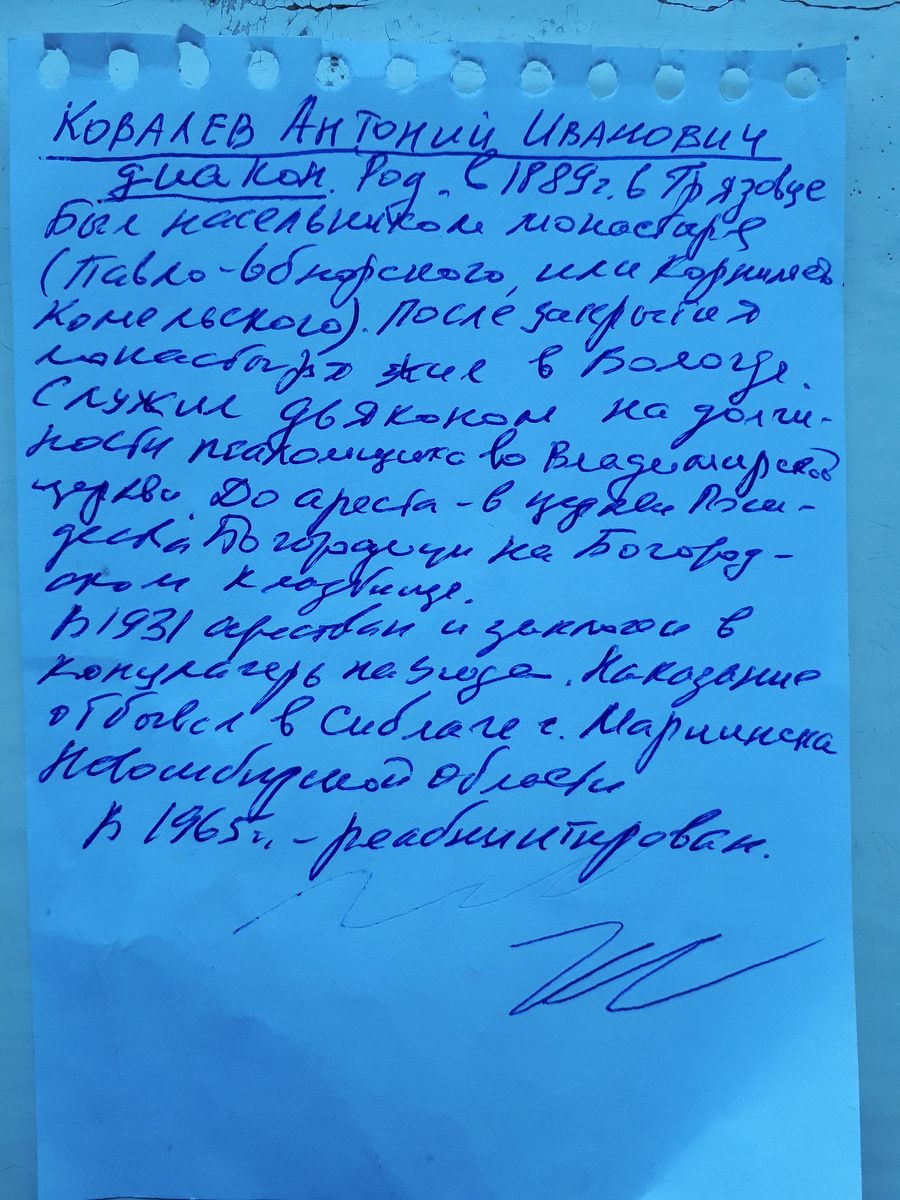 Ковалев Антоний Иванович
диакон. Род. в 1889 г. в Грязовце
Был насельником монастыря
(Павло-Обнорского, или Корнилиево
Комельского). После закрытия
монастыря жил в Вологде.
Служил дьяконом на долж-
ности псаломщика во Владимирской
церкви. До ареста - в церкви Рож-
дества Богородицы на Богород-
ском кладбище.
В 1931 арестован и заключен в
концлагерь на 3 года. Наказание
отбывал в Сиблаге г. Мариинска
Новосибирской области
В 1965 г. - реабилитирован.